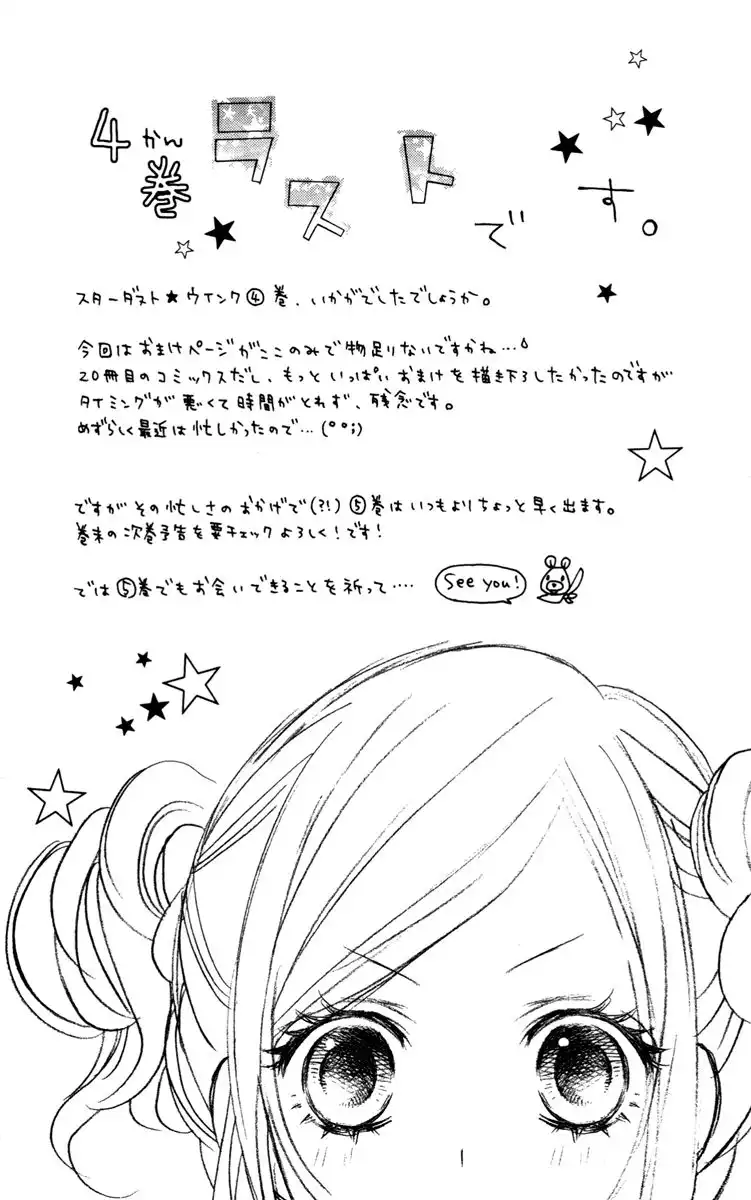 4巻ラストです。
かん
スターダスト★ウインク④巻、いかがでしたでしょうか。
今回はおまけページがここのみで物足りないですかね…
20冊目のコミックスだし、もっといっぱいおまけを描き下ろしたかったのですが
タイミングが悪くて時間がとれず、残念です。
めずらしく最近は忙しかったので…(°°;)
ですがその忙しさのおかげで(?!)⑤巻はいつもよりちょっと早く出ます。
巻末の次巻予告を要チェックよろしく!です!
では⑤巻でもお会いできることを祈って‥‥
See you!